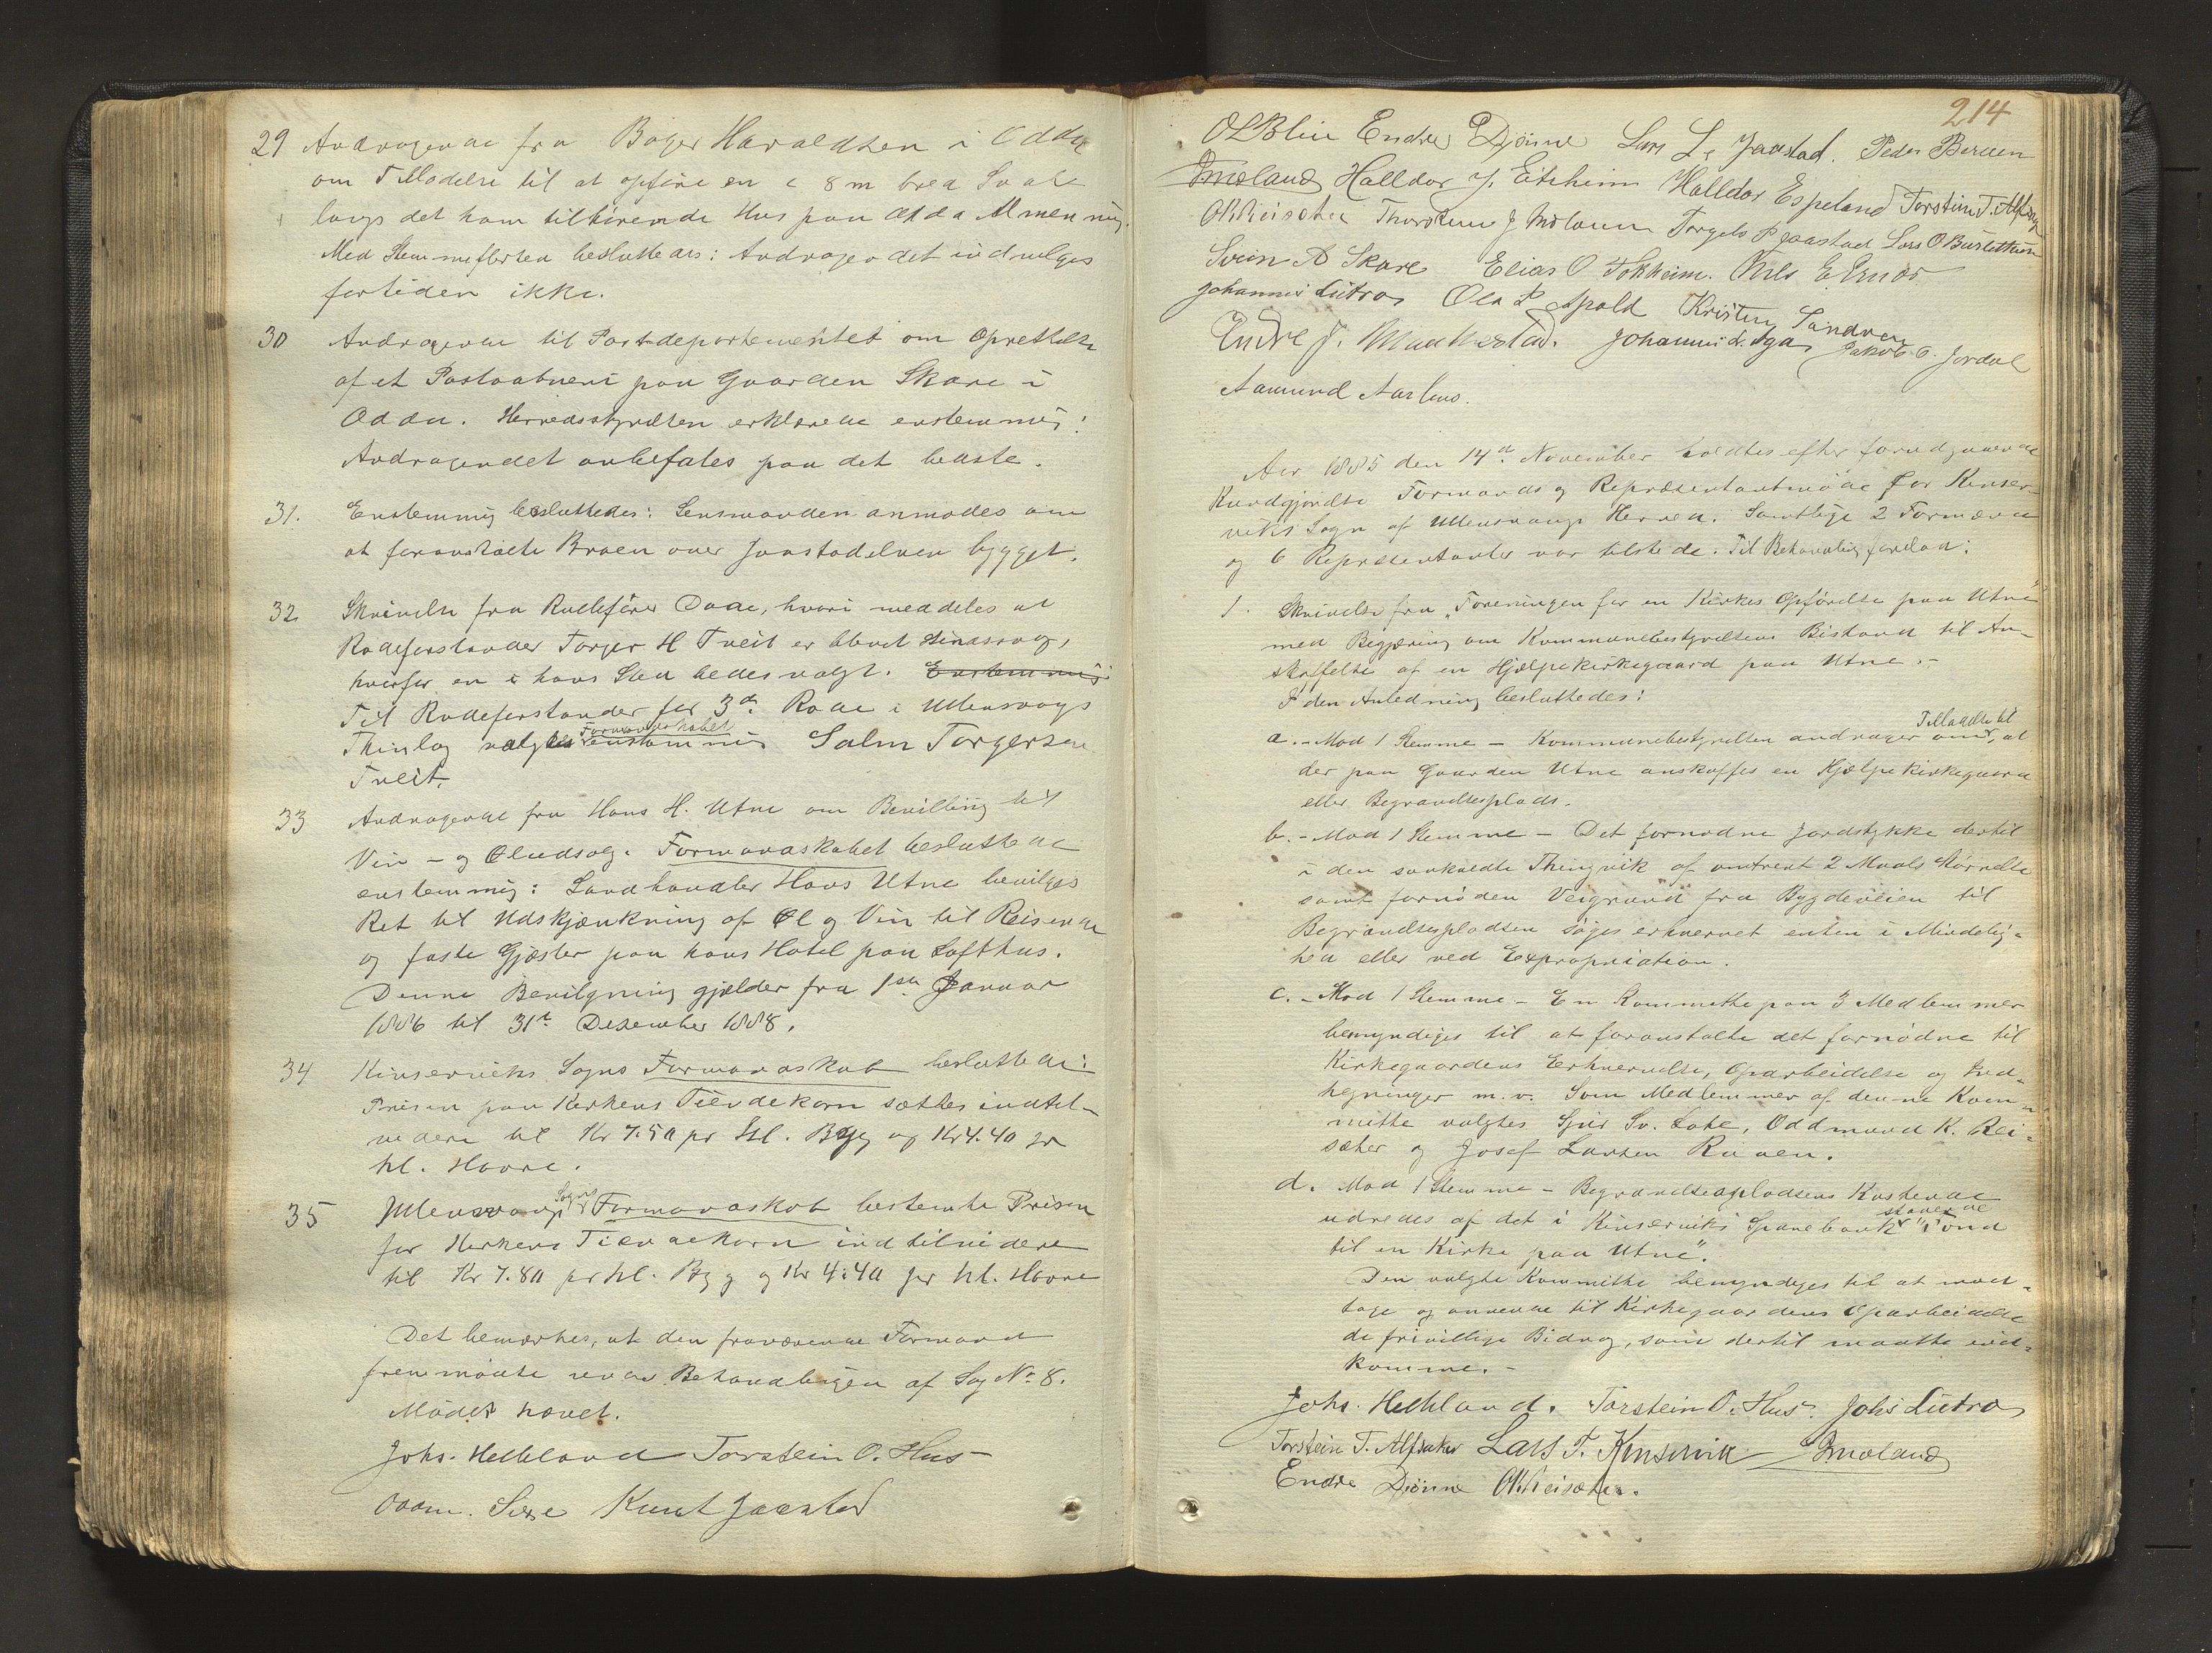 29 Andragende fra Bager Haraldsen i Odda
om Tilladelse til at opføre en c 8 m bred Svale
langs det ham tilhørende Hus paa Odda Almenning.
Med Stemmeflerhed besluttedes: Andragendet indvilges
fortiden ikke.
30 Andragende til Postdepartementet om Oprettelse
af et Postaabneri paa Gaarden Skare i
Odda. Herredsstyrelsen erklærede enstemmig:
Andragendet anbefales paa det bedste.
31. Enstemmig besluttedes: Lensmanden anmodes om
at foranstalte Broen over Jaastadelven bygget.
32 Skrivelse fra Rullefører Daae, hvori meddeles at
Rodeforstander Torger H Tveit er blevet
hvorfor en i hans Sted bedes valgt. Enstemmig
Til Rodeforstander for 3die Rode i Ullensvangs
Thinglag valgtes Formandskabet enstemmig Salm. Torgersen
Tveit.
33 Andragende fra Hans H. Utne om Bevilling til
Vin- og Øludsalg. Formandskabet besluttede
enstemmig: Landhandler Hans Utne bevilges
Ret til Udskjænkning af Øl og Vin til Reisende
og faste Gjæster paa hans Hotel paa Lofthus.
Denne Bevilgning gjælder fra 1ste Januar
1886 til 31te Desember 1888.
34 Kinserviks Sogns Formandskab besluttede:
Prisen paa Kirkens Tiendekorn sættes indtil-
videre til Kr 7.50 pr hl. Byg og Kr 4.40 pr
hl. Havre.
35 Ullensvangs Sogns Formandskab bestemte Prisen
for Kirkens Tiendekorn indtilvidere
til Kr 7.80 pr hl. Byg og Kr 4.40 pr hl. Havre
Det bemærkes, at den fraværende Formand
fremmødte under Behandlingen af Sag No 8.
Mødet hævet.
Johs. Helleland Torstein O. Hus
Oddm. Sexe Knut Jaastad
214
O L Blie Endre Djønne Lars L. Jaastad. Peder Berven
Halldor J. Eitrheim Halldor Espeland Torstein T. Alfsaker
OKReisæter Torgels P Jaastad Lars O
Svein A Skare Elias O Tokheim. Nils E.
Johannes Lutro Ola P Apold Kristen Sandven
Endre J. Johannes L. Aga Jakob O. Jordal
Aamund Aarhus.
Aar 1885 den 14de November holdtes efter forudgaaende
Kundgjørelse Formands og Repræsentantmøde for Kinser-
viks Sogn af Ullensvangs Herred. Samtlige 2 Formænd
og 6 Repræsentanter var tilstede. Til Behandling forelaa:
1. Skrivelse fra "Foreningen for en Kirkes Opførelse paa Utne"
med Begjæring om Kommunebestyrelsens Bistand til An-
skaffelse af en Hjælpekirkegaard paa Utne.-
I den Anledning besluttedes:
a. - Mod 1 Stemme - Kommunebestyrelsen andrager om Tilladelse til, at
der paa Gaarden Utne anskaffes en Hjælpekirkegaard
eller Begravelsesplads.
b. - Mod 1 Stemme - Det fornødne Jordstykke dertil
i den saakaldte Thingvik af omtrent 2 Maals Størrelse
samt fornøden Veigrund fra Bygdeveien til
Begravelsespladsen søges erhvervet enten i Mindelig-
hed eller ved Expropriation.
c. - Mod 1 Stemme - En Kommitte paa 3 Medlemmer
bemyndiges til at foranstalte det fornødne til
Kirkegaardens Erhvervelse, Oparbeidelse og Ind-
hegninger m.v. Som Medlemmer af denne Kom-
mitte valgtes Sjur Sv. Lote, Oddmund K. Rei-
sæter og Josef Larsen
d. Mod 1 Stemme - Begravelsespladsens Kostende
udredes af det i Kinserviks Sparebank staaende "Fond
til en Kirke paa Utne".
Den valgte Kommitte bemyndiges til at mod-
tage og anvende til Kirkegaardens Oparbeidelse
de frivillige Bidrag, som dertil maatte ind-
komme.-
Johs. Helleland. Torstein O. Hus. Johs Lutro
Torstein T. Alfsaker Lars T. Kinservik
Endre Djønne OKReisæter.